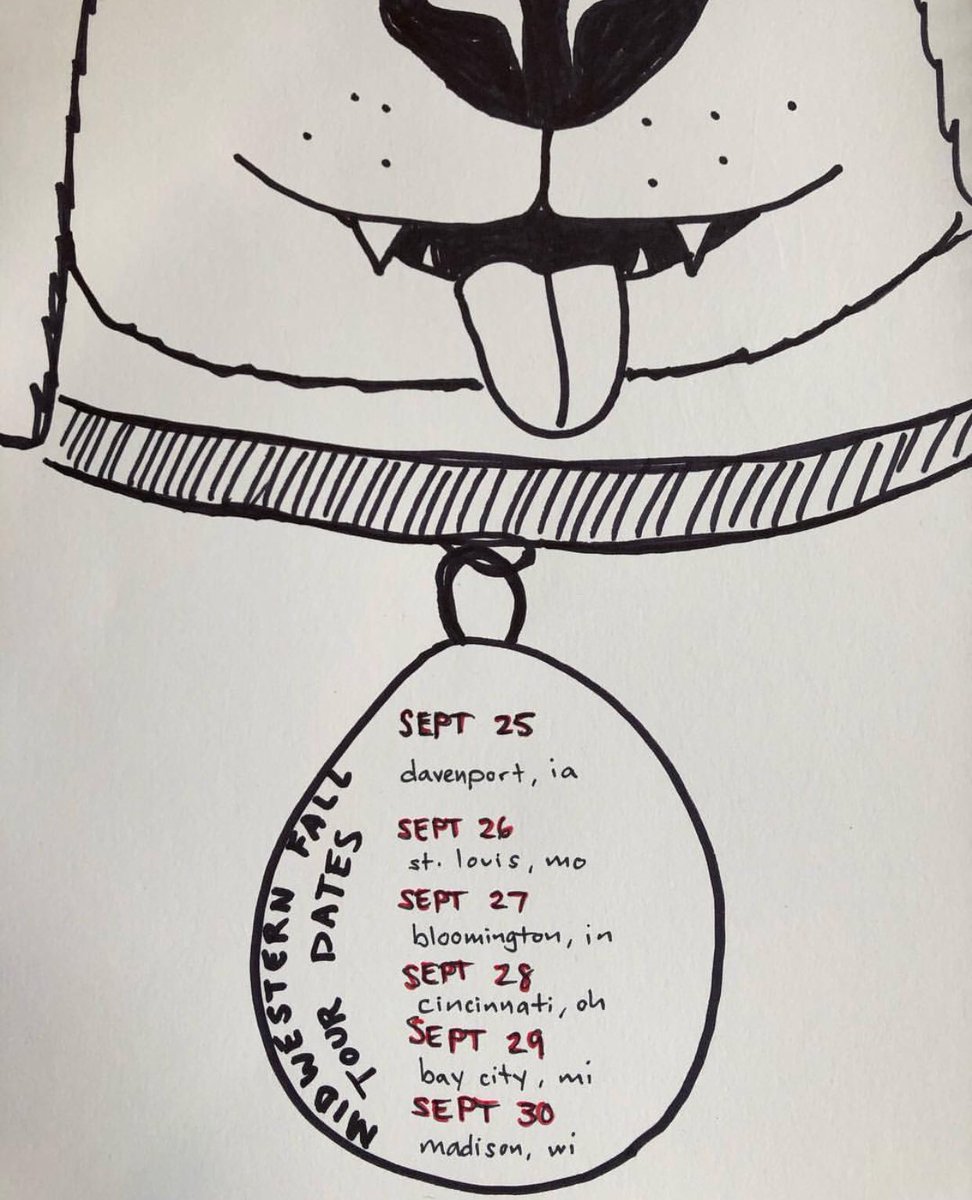 MIDWESTERN FALL
TOUR DATES
SEPT 25
davenport, ia
SEPT 26
st. louis, mo
SEPT 27
bloomington, in
SEPT 28
cincinnati, oh
SEPT 29
bay city, mi
SEPT 30
madison, wi